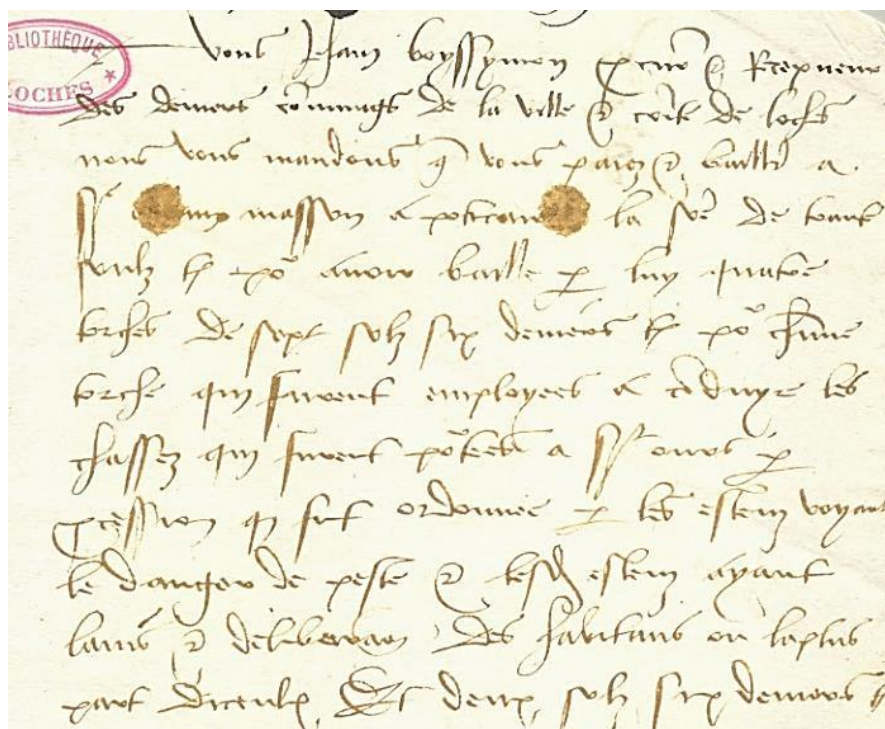 BIBLIOTHEQUE
LOCHES *
Vous Jehan boyssymon et Recepveur
des deniers communs de la ville et de loches
nous vous mandons q vous paiez et baillez a
masson apoticaire la so͞e de trante
soulz t͞ po͞ avoir baille p luy quatre
torches de sept solz six deniers t͞ po͞
torche qui furent employees a c͞duyre les
chassez qui furent po͞tees a s͞t ours p
p͞cession q fut ordonnee p les esleuz voyant
le danger de peste et lesd esleuz ayant
laduis et deliberacion des habitans ou la plus
part diceulx Et deux solz six deniers t͞